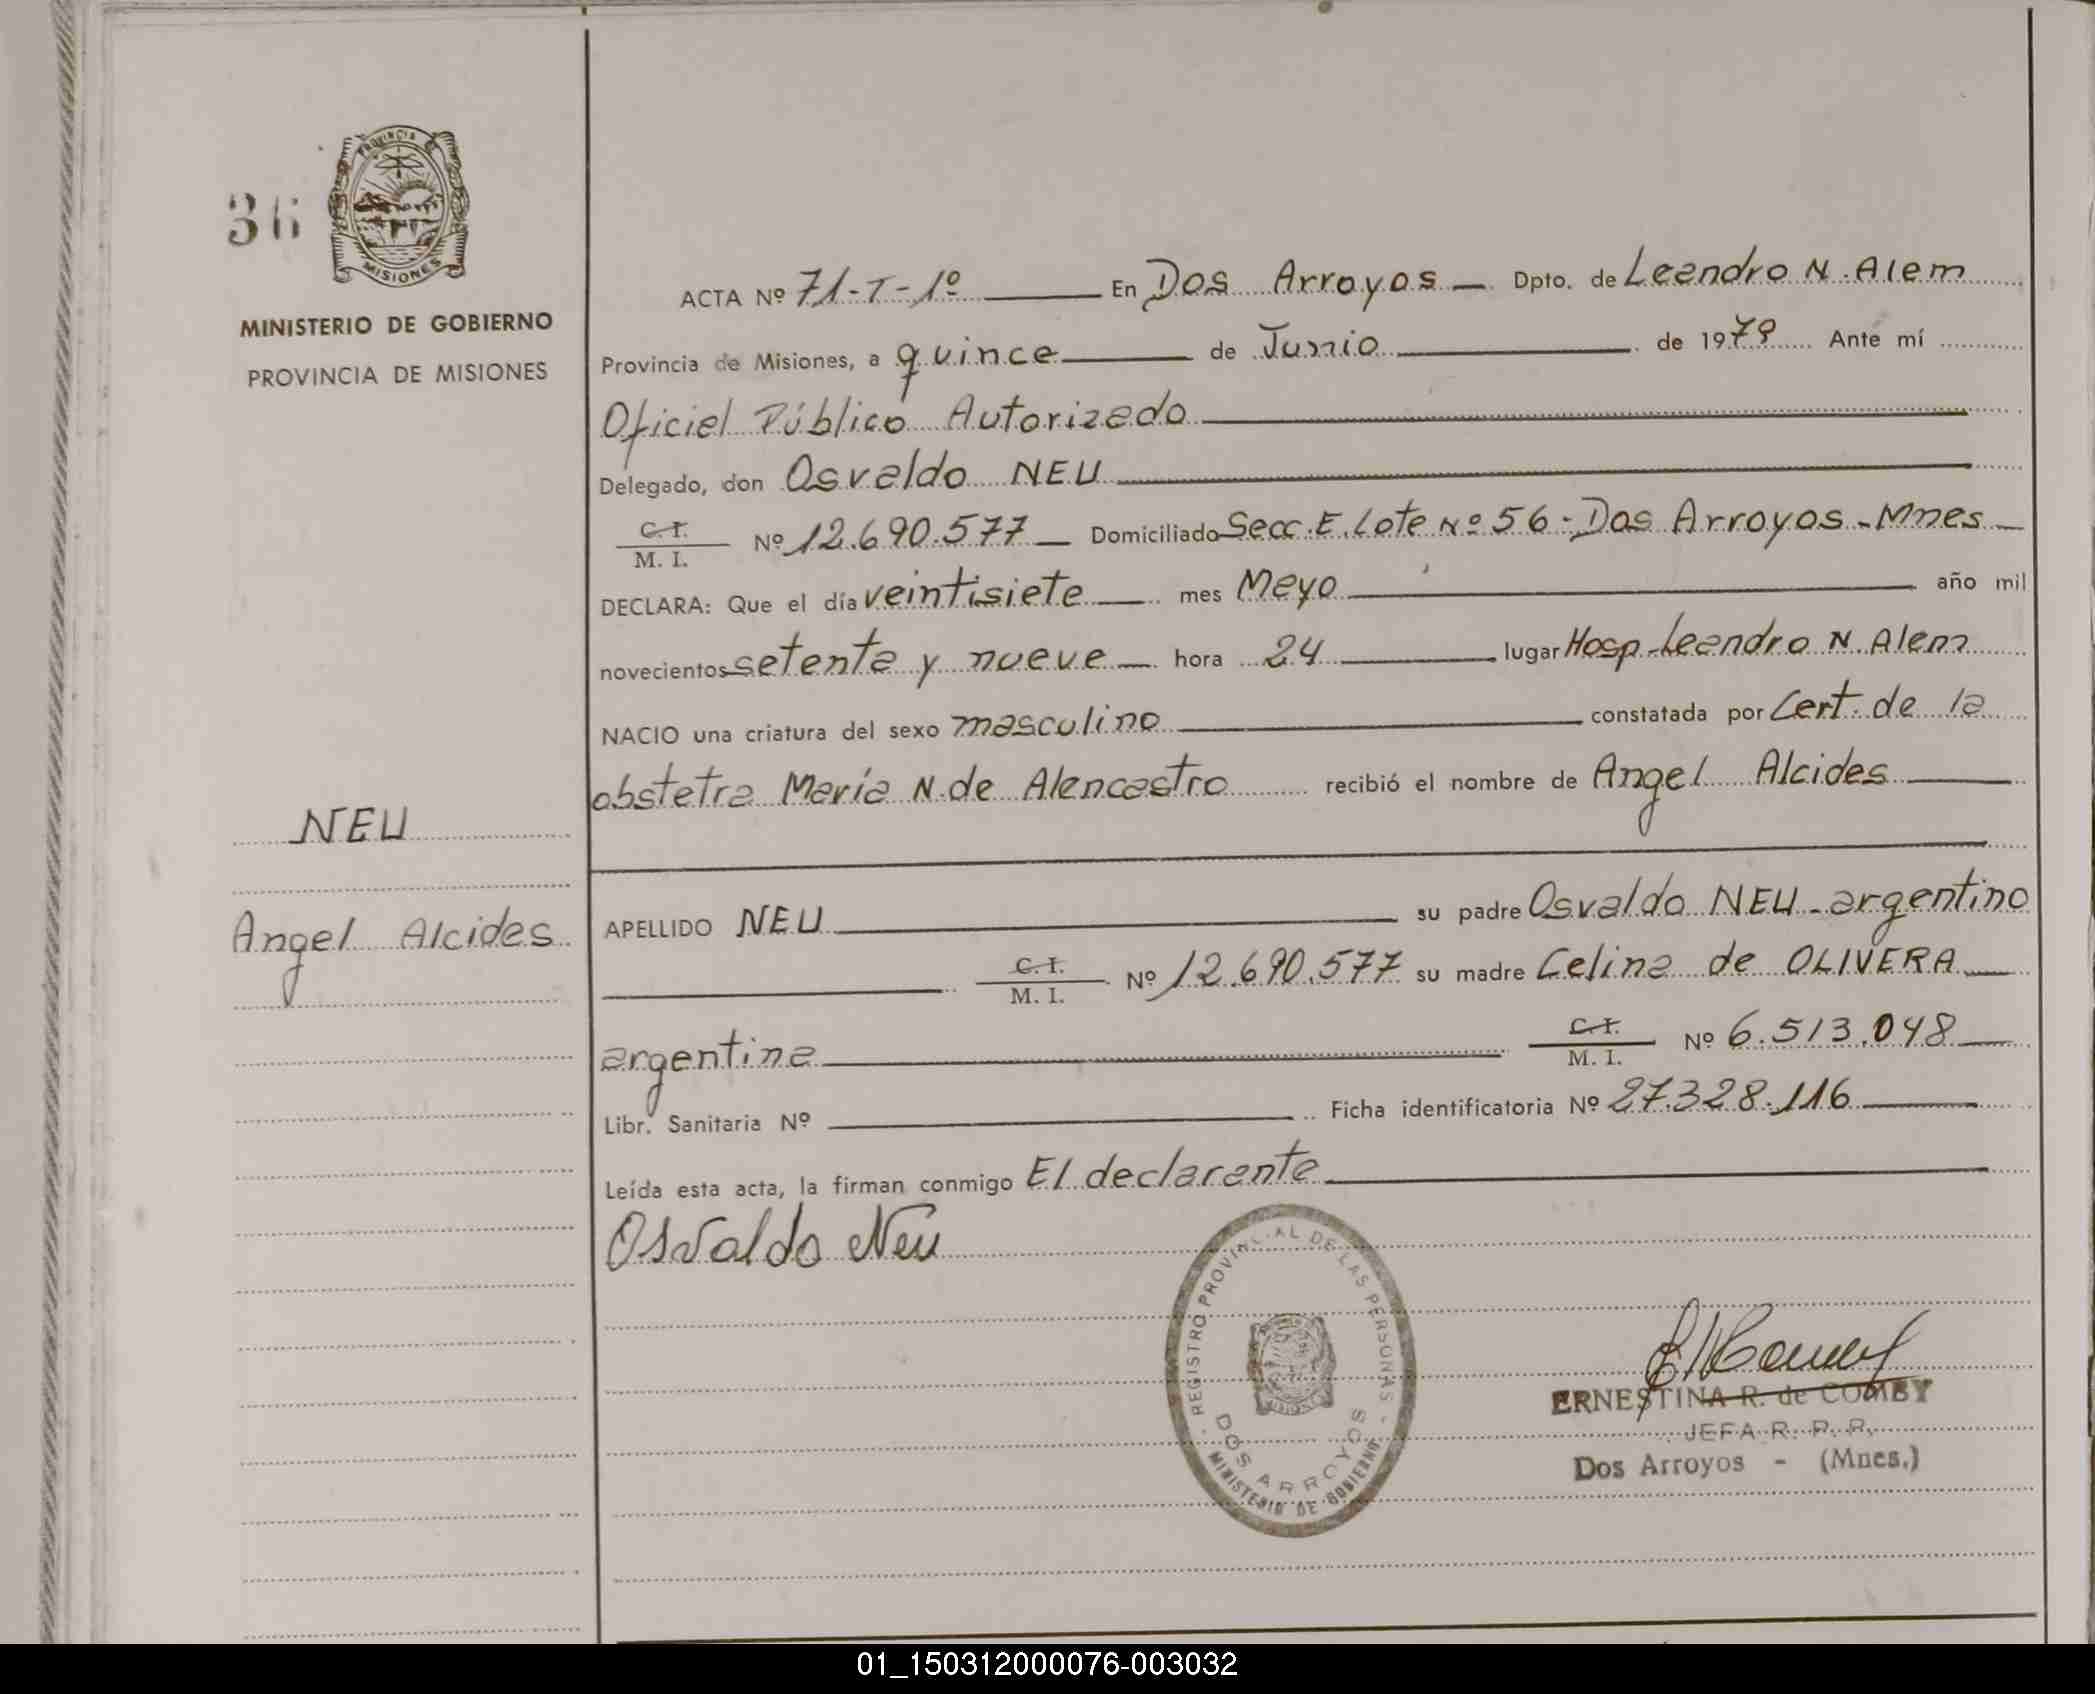 36
PROVINCIA DE
MISIONES
MINISTERIO DE GOBIERNO
PROVINCIA DE MISIONES
NEU
Angel Alcides
ACTA Nº 71-T-1º En Dos Arroyos Dpto. de Leandro N. Alem
Provincia de Misiones, a quince de Junio de 1979 Ante mí
Oficial Público Autorizado
Delegado, don Osvaldo NEU
C. I. M. I. Nº 12.690.577 Domiciliado Secc. E. Lote Nº 56 - Dos Arroyos - Mnes
DECLARA: Que el día veintisiete mes Mayo año mil
novecientos setenta y nueve hora 24 lugar Hosp. Leandro N. Alem
NACIO una criatura del sexo masculino constatada por Cert. de la
obstetra María N. de Alencastro recibió el nombre de Angel Alcides
APELLIDO NEU su padre Osvaldo NEU - argentino
C. I. M. I. Nº 12.690.577 su madre Celina de OLIVERA
argentina C. I. M. I. Nº 6.513.048
Libr. Sanitaria Nº Ficha identificatoria Nº 27.328.116
Leída esta acta, la firman conmigo El declarante
Osvaldo Neu
REGISTRO PROVINCIAL DE LAS PERSONAS
DOS ARROYOS
MINISTERIO DE GOBIERNO
ERNESTINA R. de COMBY
JEFA R. P. P.
Dos Arroyos - (Mnes.)
01_150312000076-003032